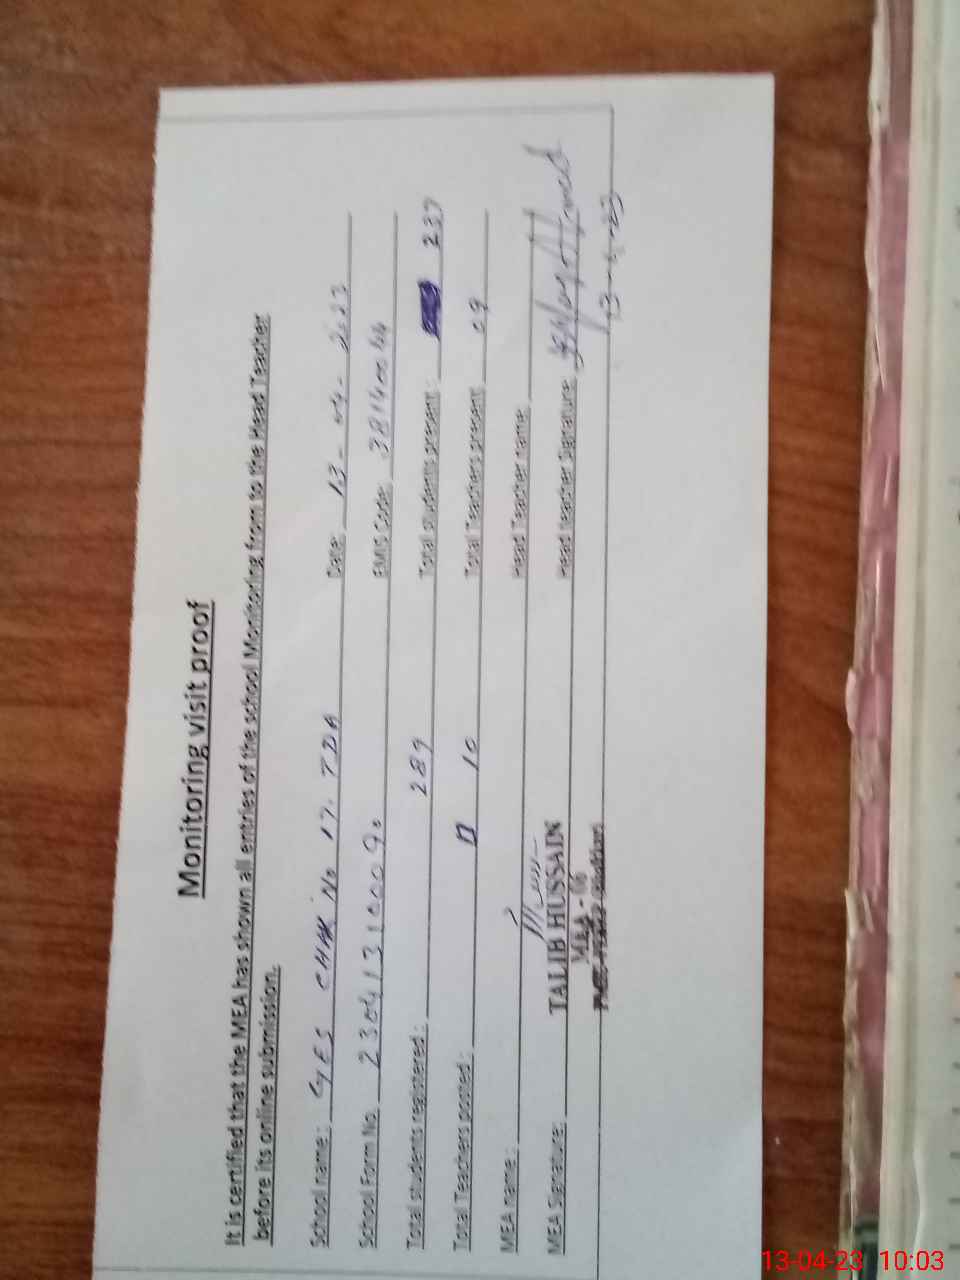 Monitoring visit proof
It is certified that the MEA has shown all entries of the school Monitoring from to the Head Teacher
before its online submission.
School name: GES CHAK No 17. TDA Date: 13-04-2023
School Form No. 2304131009 EMIS Code: 38140044
Total students registered: 289 Total students present: 237
Total Teachers posted: 10 Total Teachers present: 09
MEA name: Head Teacher name:
MEA Signature: Head Teacher Signature:
TALIB HUSSAIN
MEA - 06
13-4-23
13-04-23 10:03